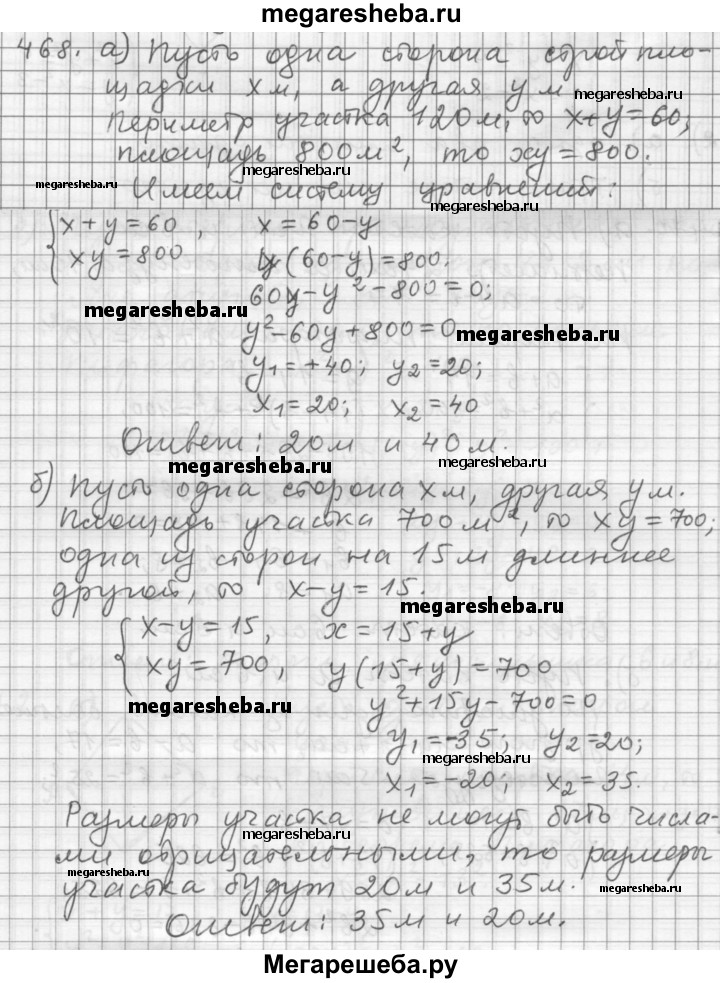 megaresheba.ru
468. а) Пусть одна сторона строй пло-
щадки х м, а другая у м megaresheba.ru
Периметр участка 120 м, то x+y=60;
площадь 800 м², то xy=800.
megaresheba.ru
megaresheba.ru Имеем систему уравнений: megaresheba.ru
{x+y=60, x=60-y
xy=800 y(60-y)=800.
60y-y²-800=0;
megaresheba.ru
y²-60y+800=0 megaresheba.ru
y₁=+40; y₂=20;
x₁=20; x₂=40
Ответ: 20 м и 40 м.
megaresheba.ru megaresheba.ru
б) Пусть одна сторона х м, другая у м.
Площадь участка 700 м², то xy=700;
одна из сторон на 15 м длиннее
другой, то x-y=15.
megaresheba.ru
{x-y=15, x=15+y
xy=700, y(15+y)=700
megaresheba.ru y²+15y-700=0
y₁=-35; y₂=20;
megaresheba.ru
x₁=-20; x₂=35.
Размеры участка не могут быть числа-
megaresheba.ru
ми отрицательными, то размеры
участка будут 20 м и 35 м. megaresheba.ru
Ответ: 35 м и 20 м.
Мегарешеба.ру